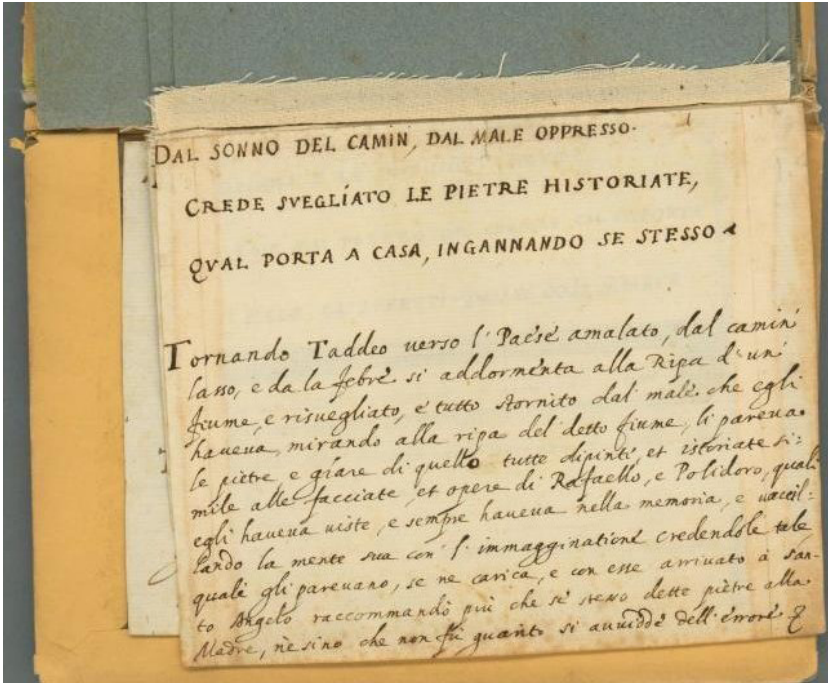 DAL SONNO DEL CAMIN, DAL MALE OPPRESSO.
CREDE SVEGLIATO LE PIETRE HISTORIATE,
QVAL PORTA A CASA, INGANNANDO SE STESSO
Tornando Taddeo uerso l' Paese amalato, dal camin
lasso, e da la febre si addormenta alla Ripa d' un
fiume, e risuegliato, e tutto stornito dal male che egli
haueua, mirando alla ripa del detto fiume, li pareua
le pietre e giare di quello tutte dipinte, et istoriate si:
mile alle facciate et opere di Rafaello, e Polidoro, quali
egli haueua uiste, e sempre haueua nella memoria, e uaccil:
lando la mente sua con l' immagginatione credendole tale
quale gli pareuano, se ne carica, e con esse arriuato à San-
to Angelo raccommandò più che se stesso dette piètre alla
Madre, ne sino che non fù guarito si auuidde dell' errore